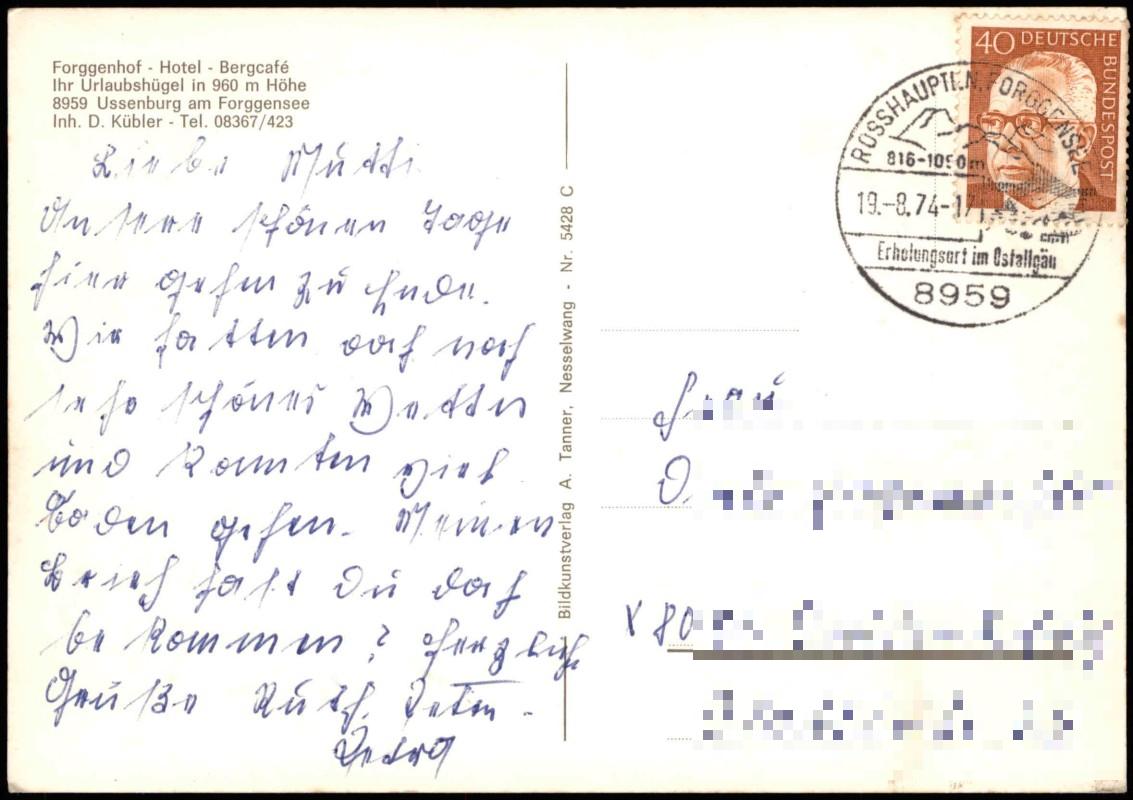 Forggenhof - Hotel - Bergcafé
Ihr Urlaubshügel in 960 m Höhe
8959 Ussenburg am Forggensee
Inh. D. Kübler - Tel. 08367/423
Liebe Mutti
Unsere schönen Tage
hier gehen zu Ende.
Wir hatten doch noch
sehr schönes Wetter
und konnten viel
Boden gehen. Meinen
Brief hast Du doch
bekommen? Herzliche
Grüße Ruth, Peter -
Petra
Bildkunstverlag A. Tanner, Nesselwang - Nr. 5428 C
40 DEUTSCHE
BUNDESPOST
ROSSHAUPTEN, FORGGENSEE
816-1050m
19.-8.74-17
Erholungsort im Ostallgäu
8959
Frau
X 80